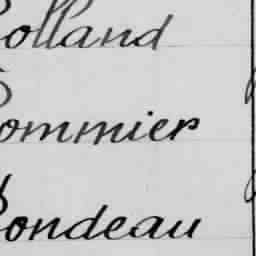 olland
ommier
ondeau